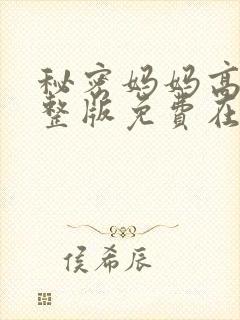 秘密妈妈高
整版免费在
侯希辰